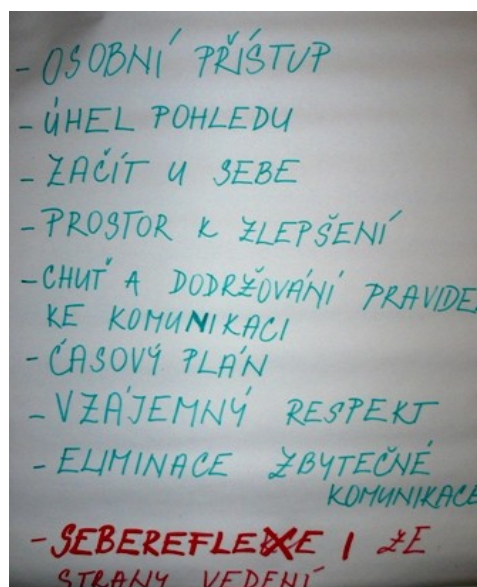 - OSOBNÍ PŘÍSTUP
- ÚHEL POHLEDU
- ZAČÍT U SEBE
- PROSTOR K ZLEPŠENÍ
- CHUŤ A DODRŽOVÁNÍ PRAVIDE
KE KOMUNIKACI
- ČASOVÝ PLÁN
- VZÁJEMNÝ RESPEKT
- ELIMINACE ZBYTEČNÉ
KOMUNIKACE
- SEBEREFLEXE I ZE
STRANY VEDENÍ